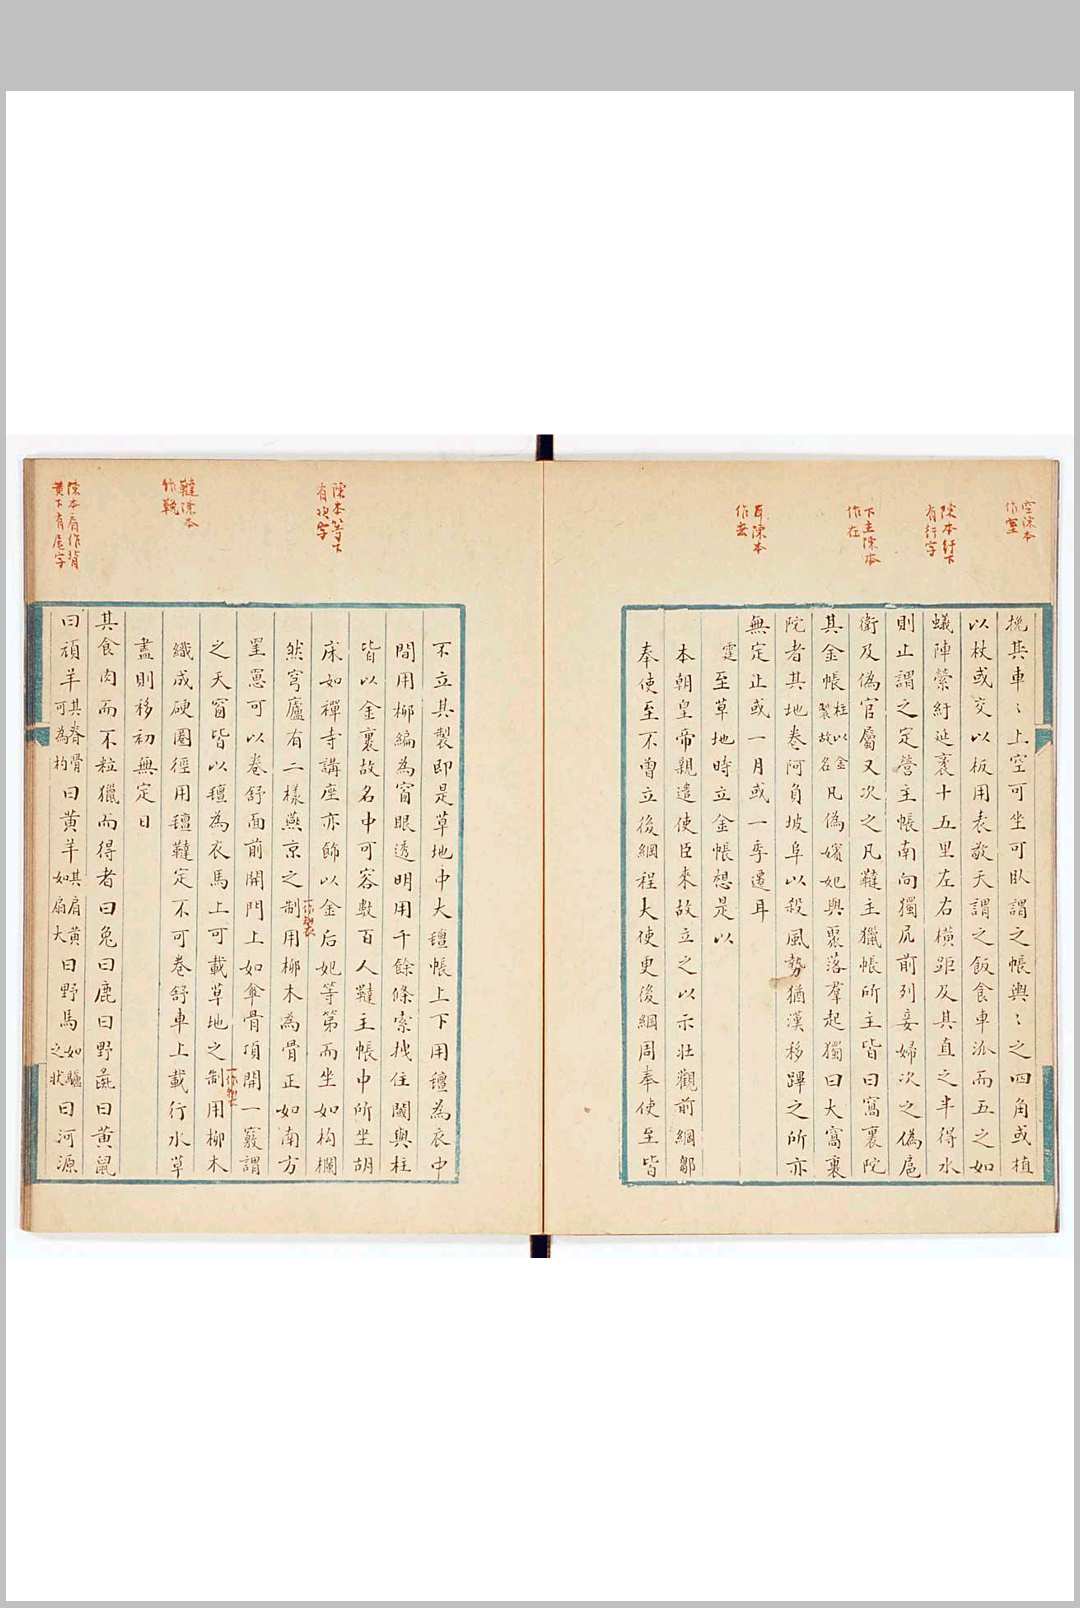 空陳本
作室
陳本行下
有行字
下主陳本
作在
耳陳本
作云
挽其車〻上空可坐可臥謂之帳輿〻之四角或植
以杖或交以板用表敬天謂之飯食車派而五之如
蟻陣縈紆延袤十五里左右橫距及其直之半得水
則止謂之定營主帳南向獨居前列妾婦次之偽扈
衛及偽官屬又次之凡韃主獵帳所主皆曰窩裏陀
其金帳柱以金製故名凡偽嬪妃與聚落羣起獨曰大窩裏
陀者其地卷阿負坡阜以殺風勢猶漢移蹕之所亦
無定止或一月或一季遷耳
霆至草地時立金帳想是以
本朝皇帝親遣使臣來故立之以示壯觀前綱鄒
奉使至不曾立後綱程大使更後綱周奉使至皆
陳本等下
有次字
韃陳本
作靴
陳本肩作背
黃下有尾字
不立其製即是草地中大氊帳上下用氊為衣中
間用柳編為窗眼透明用千餘條索拽住閾與柱
皆以金裹故名中可容數百人韃主帳中所坐胡
床如禪寺講座亦飾以金后妃等第而坐如构欄
然穹廬有二樣燕京之制用柳木為骨正如南方
罣罳可以卷舒面前開門上如傘骨頂開一竅謂
之天窗皆以氊為衣馬上可載草地之制用柳木
織成硬圈徑用氊韃定不可卷舒車上載行水草
盡則移初無定日
其食肉而不粒獵而得者曰兔曰鹿曰野彘曰黃鼠
曰頑羊其脊骨可為杓曰黃羊其肩黃如扇大曰野馬如驢之狀曰河源